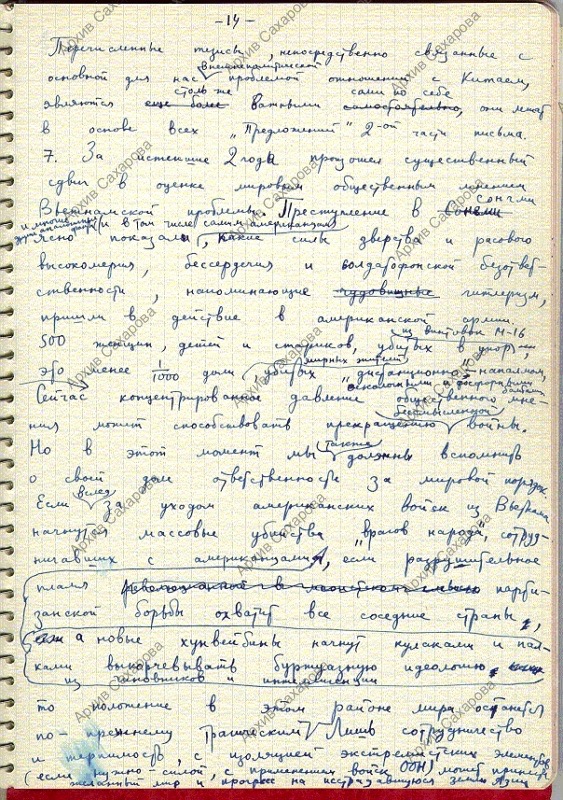 – 14 –
Перечисленные тезисы, непосредственно связанные с
внешнеполитической
основной для нас проблемой отношений с Китаем,
столь же сами по себе
являются еще более важными самостоятельно, они лежат
в основе всех "Предложений" 2-ой части письма.
7. За истекшие 2 года произошел существенный
сдвиг в оценке мировым общественным мнением
Вьетнамской проблемы. Преступление в Сонгми
и многие (и в том числе самим американцам)
ясно показали, какие силы зверства и расового
высокомерия, бессердечия и солдафонской безответ-
ственности, напоминающие чудовищные гитлеризм,
пришли в действие в американской армии.
из винтовок М-16
500 женщин, детей и стариков, убитых в упор,
мирных жителей
это менее 1/1000 доли убитых "дистанционно" напалмом,
осколочными фосфорными бомбами
Сейчас концентрированное давление общественного мне-
бессмысленной
ния может способствовать прекращению войны.
также
Но в этот момент мы должны вспомнить
о своей доле ответственности за мировой порядок
вслед
Если за уходом американских войск из Вьетнама
начнутся массовые убийства "врагов народа", сотруд-
ничавших с американцами, если разрушительное
пламя революционной парти-
занской борьбы охватит все соседние страны,
а новые хунвейбины начнут кулаками и пал-
ками выкорчевывать буржуазную идеологию
из чиновников и интеллигенции
то положение в этом районе мира останется
по-прежнему трагическим. Лишь сотрудничество
и терпимость, с изоляцией экстремистских элементов
(если нужно – силой, с применением войск ООН) может принести
желанный мир и прогресс на исстрадавшуюся землю Азии
Архив Сахарова